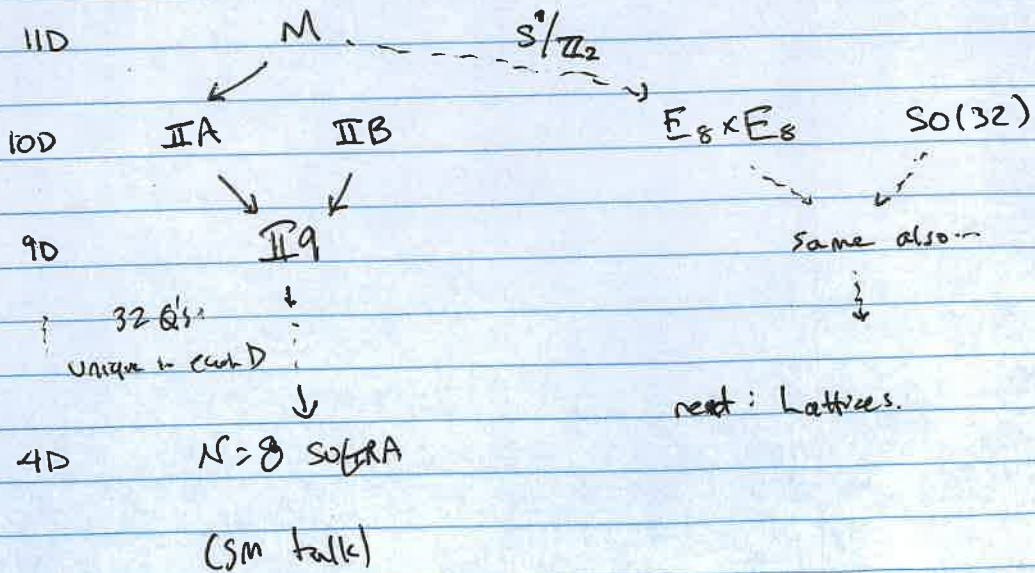 11D M S¹/ℤ₂
10D IIA IIB E₈×E₈ SO(32)
9D II9 same also...
32 Q's:
unique in each D
next: Lattices.
4D N=8 SUGRA
(SM talk)